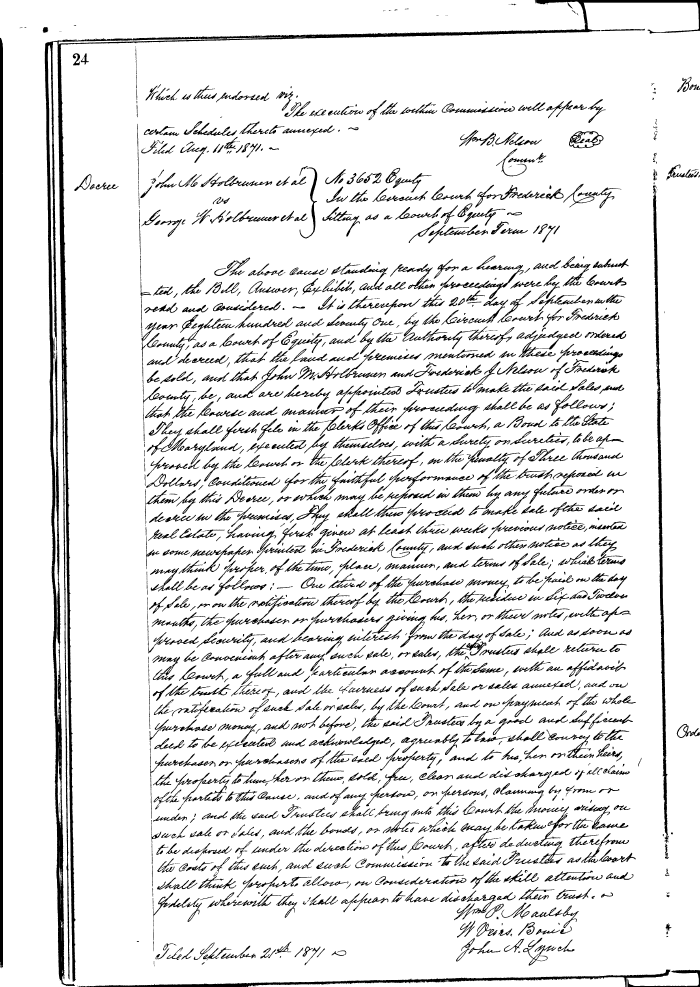 24
Which is thus endorsed viz.
The execution of the within Commission will appear by
certain Schedules thereto annexed. ~
Filed Aug. 11th 1871. ~
Wm B. Nelson Seal
Comnr.
Decree
John M Holbruner et al
vs
George W Holbruner et al
No 3652 Equity
In the Circuit Court for Frederick County
Sitting as a Court of Equity ~
September Term 1871
The above cause standing ready for a hearing, and being submit
=ted, the Bill, Answer, Exhibits, and all other proceedings were by the Court
read and considered. — It is thereupon this 20th day of September in the
year Eighteen hundred and Seventy One, by the Circuit Court for Frederick
County, as a Court of Equity, and by the Authority thereof, adjudged ordered
and decreed, that the land and premises mentioned in these proceedings
be sold, and that John M. Holbruner and Frederick J. Nelson of Frederick
County, be, and are hereby appointed Trustees to make the said Sales, and
that the Course and manner of their proceeding shall be as follows;
They shall first file in the Clerks Office of this Court, a Bond to the State
of Maryland, executed by themselves, with a surety or sureties, to be ap-
proved by the Court or the Clerk thereof, in the penalty of Three thousand
Dollars, conditioned for the faithful performance of the trust reposed in
them by this Decree, or which may be reposed in them by any future order or
decree in the premises, They shall then proceed to make sale of the said
real Estate, having first given at least three weeks previous notice, inserted
in some newspaper printed in Frederick County, and such other notice as they
may think proper, of the time, place, manner, and terms of Sale; which terms
shall be as follows: — One third of the purchase money, to be paid on the day
of Sale, or on the ratification thereof by the Court, the residue in Six and Twelve
months, the purchaser or purchasers giving his, her, or their notes, with ap-
proved security, and bearing interest from the day of sale; And as soon as
may be convenient after any such sale, or sales, the Trustees shall return to
this Court, a full and particular account of the same, with an affidavit
of the truth thereof, and the fairness of such Sale or sales annexed, and on
the ratification of such Sale or sales, by the Court, and on payment of the whole
purchase money, and not before, the said Trustees by a good and sufficient
deed to be executed and acknowledged, agreeably to law, shall convey to the
purchaser or purchasers of the said property, and to his, her or their heirs,
the property to him, her or them, sold, free, clear and discharged of all claims
of the parties to this Cause, and of any person, or persons, claiming by from or
under; and the said Trustees shall bring into this Court the money arising on
such sale or Sales, and the bonds, or notes which may be taken for the same
to be disposed of under the direction of this Court, after deducting therefrom
the costs of this suit, and such Commission to the said Trustees as the Court
shall think proper to allow, on consideration of the skill attention and
fidelity wherewith they shall appear to have discharged their trust. ~
Wm P. Maulsby
W Veirs. Bouic
John A. Lynch
Filed September 21st 1871 ~
Bon
Trustees
Orde